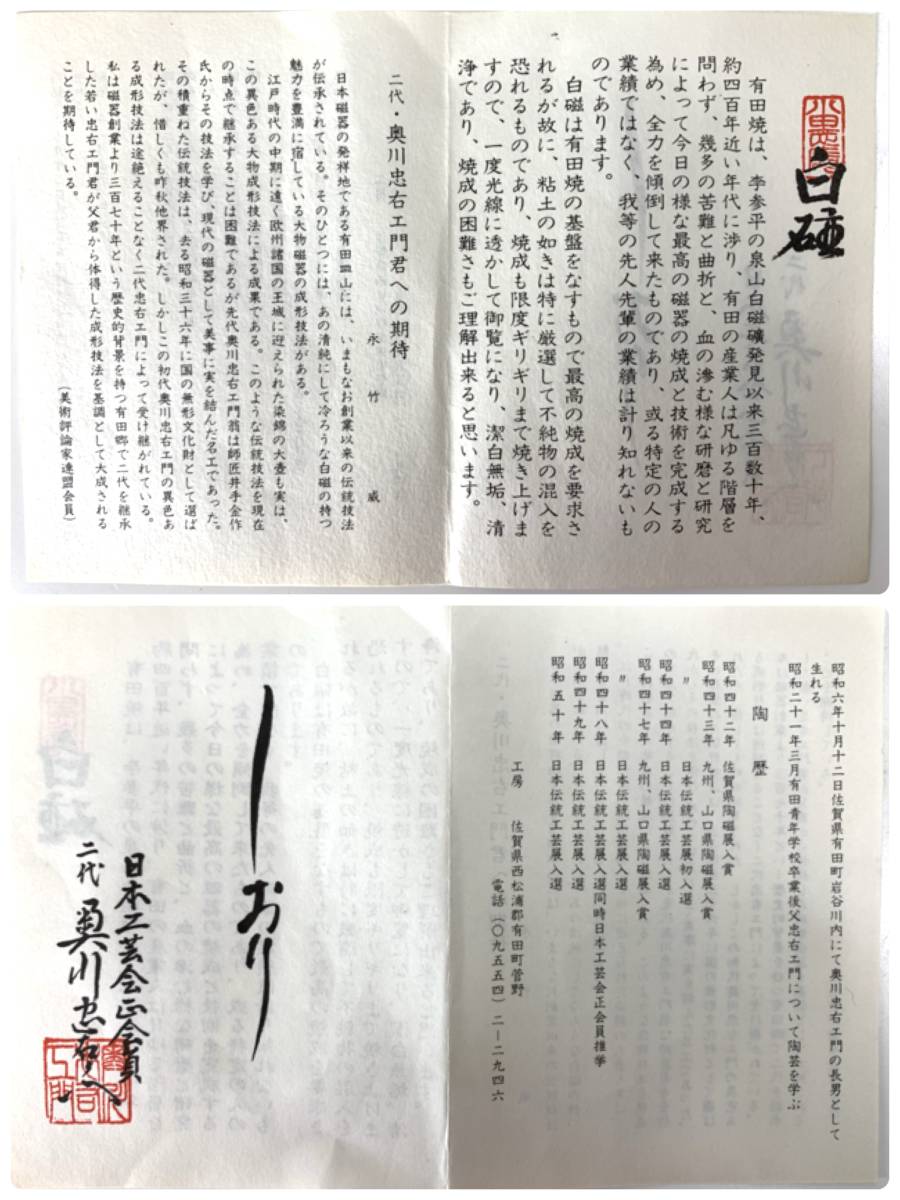 白磁
有田焼は、李参平の泉山白磁礦発見以来三百数十年、
約四百年近い年代に渉り、有田の産業人は凡ゆる階層を
問わず、幾多の苦難と曲折と、血の滲む様な研磨と研究
によって今日の様な最高の磁器の焼成と技術を完成する
為め、全力を傾倒して来たものであり、或る特定の人の
業績ではなく、我等の先人先輩の業績は計り知れないも
のであります。
白磁は有田焼の基盤をなすもので最高の焼成を要求さ
れるが故に、粘土の如きは特に厳選して不純物の混入を
恐れるものであり、焼成も限度ギリギリまで焼き上げま
すので、一度光線に透かして御覧になり、潔白無垢、清
浄であり、焼成の困難さもご理解出来ると思います。
二代・奥川忠右エ門君への期待
永竹威
日本磁器の発祥地である有田皿山には、いまもなお創業以来の伝統技法
が伝承されている。そのひとつには、あの清純にして冷ろうな白磁の持つ
魅力を豊満に宿している大物磁器の成形技法がある。
江戸時代の中期に遠く欧州諸国の王城に迎えられた染錦の大壷も実は、
この異色ある大物成形技法による成果である。このような伝統技法を現在
の時点で継承することは困難であるが先代奥川忠右エ門翁は師匠井手金作
氏からその技法を学び、現代の磁器として美事に実を結んだ名工であった。
その積重ねた伝統技法は、去る昭和三十六年に国の無形文化財として選ば
れたが、惜しくも昨秋他界された。しかしこの初代奥川忠右エ門の異色あ
る成形技法は途絶えることなく二代忠右エ門によって受け継がれている。
私は磁器創業より三百七十年という歴史的背景を持つ有田郷で二代を継承
した若い忠右エ門君が父君から体得した成形技法を基調として大成される
ことを期待している。
(美術評論家連盟会員)
昭和六年十月十二日佐賀県有田町岩谷川内にて奥川忠右エ門の長男として
生れる
昭和二十一年三月有田青年学校卒業後父忠右エ門について陶芸を学ぶ
陶歴
昭和四十二年 佐賀県陶磁展入賞
昭和四十三年 九州、山口県陶磁展入賞
〃 日本伝統工芸展初入選
昭和四十四年 日本伝統工芸展入選
昭和四十七年 九州、山口県陶磁展入賞
〃 日本伝統工芸展入選
昭和四十八年 日本伝統工芸展入選同時日本工芸会正会員推挙
昭和四十九年 日本伝統工芸展入選
昭和五十年 日本伝統工芸展入選
工房 佐賀県西松浦郡有田町菅野
(電話(〇九五五四)二ー二九四六
しおり
日本工芸会正会員
二代 奥川忠右ヱ門